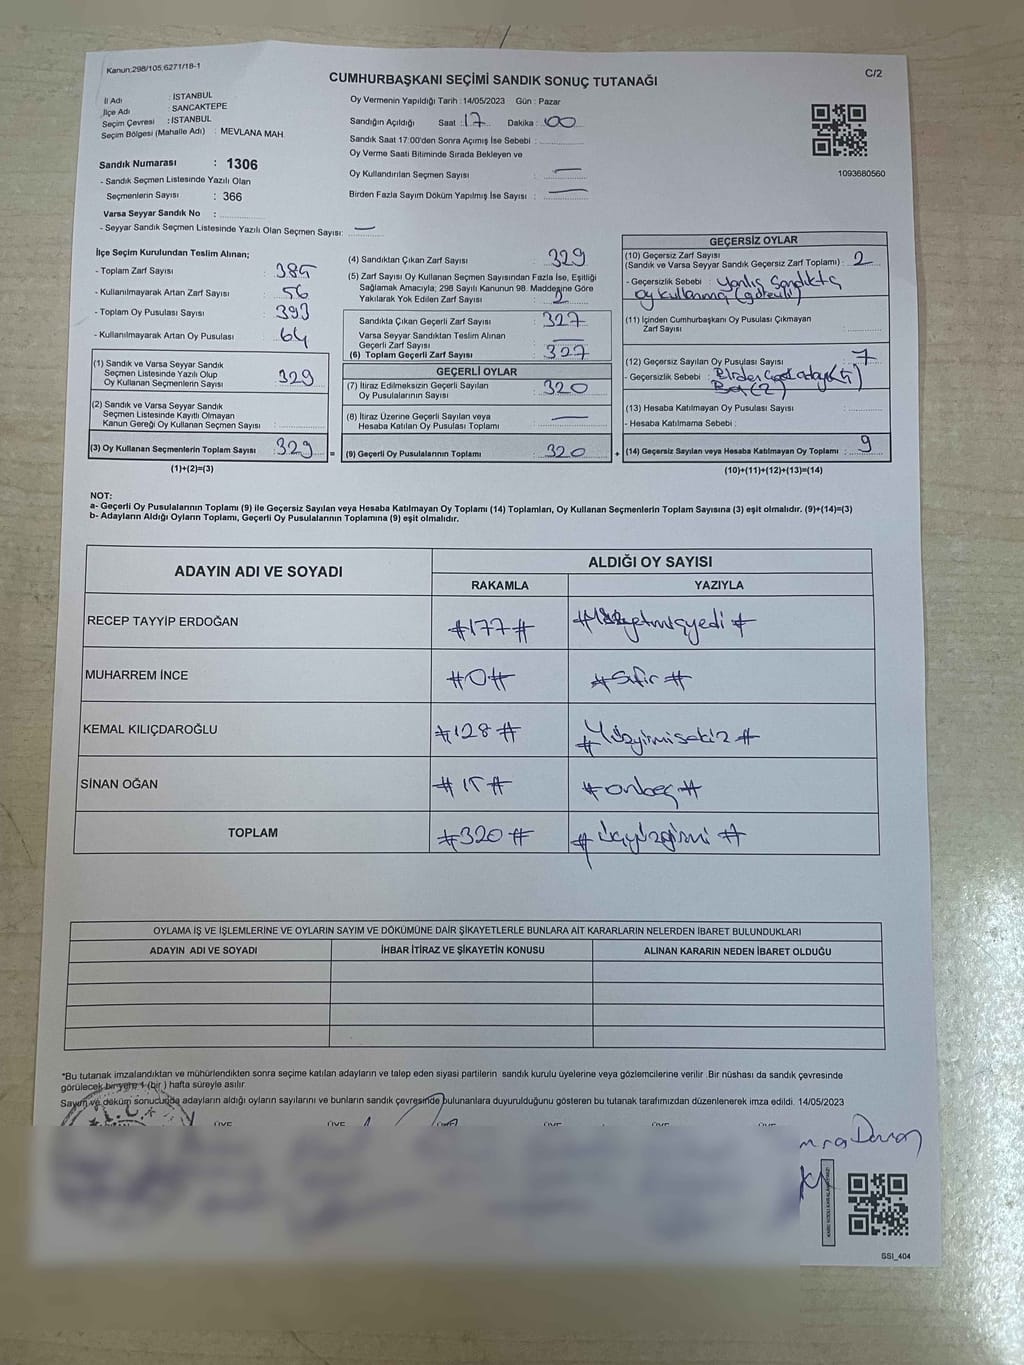 Kanun:298/105;6271/18-1
C/2
CUMHURBAŞKANI SEÇİMİ SANDIK SONUÇ TUTANAĞI
İl Adı : İSTANBUL
İlçe Adı : SANCAKTEPE
Seçim Çevresi : İSTANBUL
Seçim Bölgesi (Mahalle Adı) : MEVLANA MAH.
Sandık Numarası : 1306
- Sandık Seçmen Listesinde Yazılı Olan
Seçmenlerin Sayısı : 366
Varsa Seyyar Sandık No :
- Seyyar Sandık Seçmen Listesinde Yazılı Olan Seçmen Sayısı: —
Oy Vermenin Yapıldığı Tarih : 14/05/2023 Gün : Pazar
Sandığın Açıldığı Saat : 17 Dakika : 00
Sandık Saat 17:00'den Sonra Açımış İse Sebebi :
Oy Verme Saati Bitiminde Sırada Bekleyen ve
Oy Kullandırılan Seçmen Sayısı : —
Birden Fazla Sayım Döküm Yapılmış İse Sayısı : —
1093680560
İlçe Seçim Kurulundan Teslim Alınan;
- Toplam Zarf Sayısı : 385
- Kullanılmayarak Artan Zarf Sayısı : 56
- Toplam Oy Pusulası Sayısı : 393
- Kullanılmayarak Artan Oy Pusulası : 64
(1) Sandık ve Varsa Seyyar Sandık
Seçmen Listesinde Yazılı Olup
Oy Kullanan Seçmenlerin Sayısı : 329
(2) Sandık ve Varsa Seyyar Sandık
Seçmen Listesinde Kayıtlı Olmayan
Kanun Gereği Oy Kullanan Seçmen Sayısı :
(3) Oy Kullanan Seçmenlerin Toplam Sayısı : 329
(1)+(2)=(3)
(4) Sandıktan Çıkan Zarf Sayısı : 329
(5) Zarf Sayısı Oy Kullanan Seçmen Sayısından Fazla İse, Eşitliği
Sağlamak Amacıyla; 298 Sayılı Kanunun 98. Maddesine Göre
Yakılarak Yok Edilen Zarf Sayısı : 2
Sandıkta Çıkan Geçerli Zarf Sayısı : 327
Varsa Seyyar Sandıktan Teslim Alınan
Geçerli Zarf Sayısı : —
(6) Toplam Geçerli Zarf Sayısı : 327
GEÇERLİ OYLAR
(7) İtiraz Edilmeksizin Geçerli Sayılan
Oy Pusulalarının Sayısı : 320
(8) İtiraz Üzerine Geçerli Sayılan veya
Hesaba Katılan Oy Pusulası Toplamı : —
= (9) Geçerli Oy Pusulalarının Toplamı : 320
GEÇERSİZ OYLAR
(10) Geçersiz Zarf Sayısı
(Sandık ve Varsa Seyyar Sandık Geçersiz Zarf Toplamı) : 2
- Geçersizlik Sebebi : Yanlış Sandıkta
oy kullanma (görevli)
(11) İçinden Cumhurbaşkanı Oy Pusulası Çıkmayan
Zarf Sayısı :
(12) Geçersiz Sayılan Oy Pusulası Sayısı : 7
- Geçersizlik Sebebi : Birden
Boş (2)
(13) Hesaba Katılmayan Oy Pusulası Sayısı :
- Hesaba Katılmama Sebebi :
+ (14) Geçersiz Sayılan veya Hesaba Katılmayan Oy Toplamı : 9
(10)+(11)+(12)+(13)=(14)
NOT:
a- Geçerli Oy Pusulalarının Toplamı (9) ile Geçersiz Sayılan veya Hesaba Katılmayan Oy Toplamı (14) Toplamları, Oy Kullanan Seçmenlerin Toplam Sayısına (3) eşit olmalıdır. (9)+(14)=(3)
b- Adayların Aldığı Oyların Toplamı, Geçerli Oy Pusulalarının Toplamına (9) eşit olmalıdır.
ADAYIN ADI VE SOYADI
ALDIĞI OY SAYISI
RAKAMLA YAZIYLA
RECEP TAYYİP ERDOĞAN #177# yetmişyedi #
MUHARREM İNCE #0# #sıfır#
KEMAL KILIÇDAROĞLU #128# #Yüzyirmisekiz#
SİNAN OĞAN #15# #onbeş#
TOPLAM #320# #üçyüzyirmi#
OYLAMA İŞ VE İŞLEMLERİNE VE OYLARIN SAYIM VE DÖKÜMÜNE DAİR ŞİKAYETLERLE BUNLARA AİT KARARLARIN NELERDEN İBARET BULUNDUKLARI
ADAYIN ADI VE SOYADI İHBAR İTİRAZ VE ŞİKAYETİN KONUSU ALINAN KARARIN NEDEN İBARET OLDUĞU
*Bu tutanak imzalandıktan ve mühürlendikten sonra seçime katılan adayların ve talep eden siyasi partilerin sandık kurulu üyelerine veya gözlemcilerine verilir .Bir nüshası da sandık çevresinde
görülecek bir yere 1 (bir ) hafta süreyle asılır.
Sayım ve döküm sonucunda adayların aldığı oyların sayılarını ve bunların sandık çevresinde bulunanlara duyurulduğunu gösteren bu tutanak tarafımızdan düzenlenerek imza edildi. 14/05/2023
T.C.
ÜYE ÜYE ÜYE ÜYE ÜYE ÜYE
GSI_404